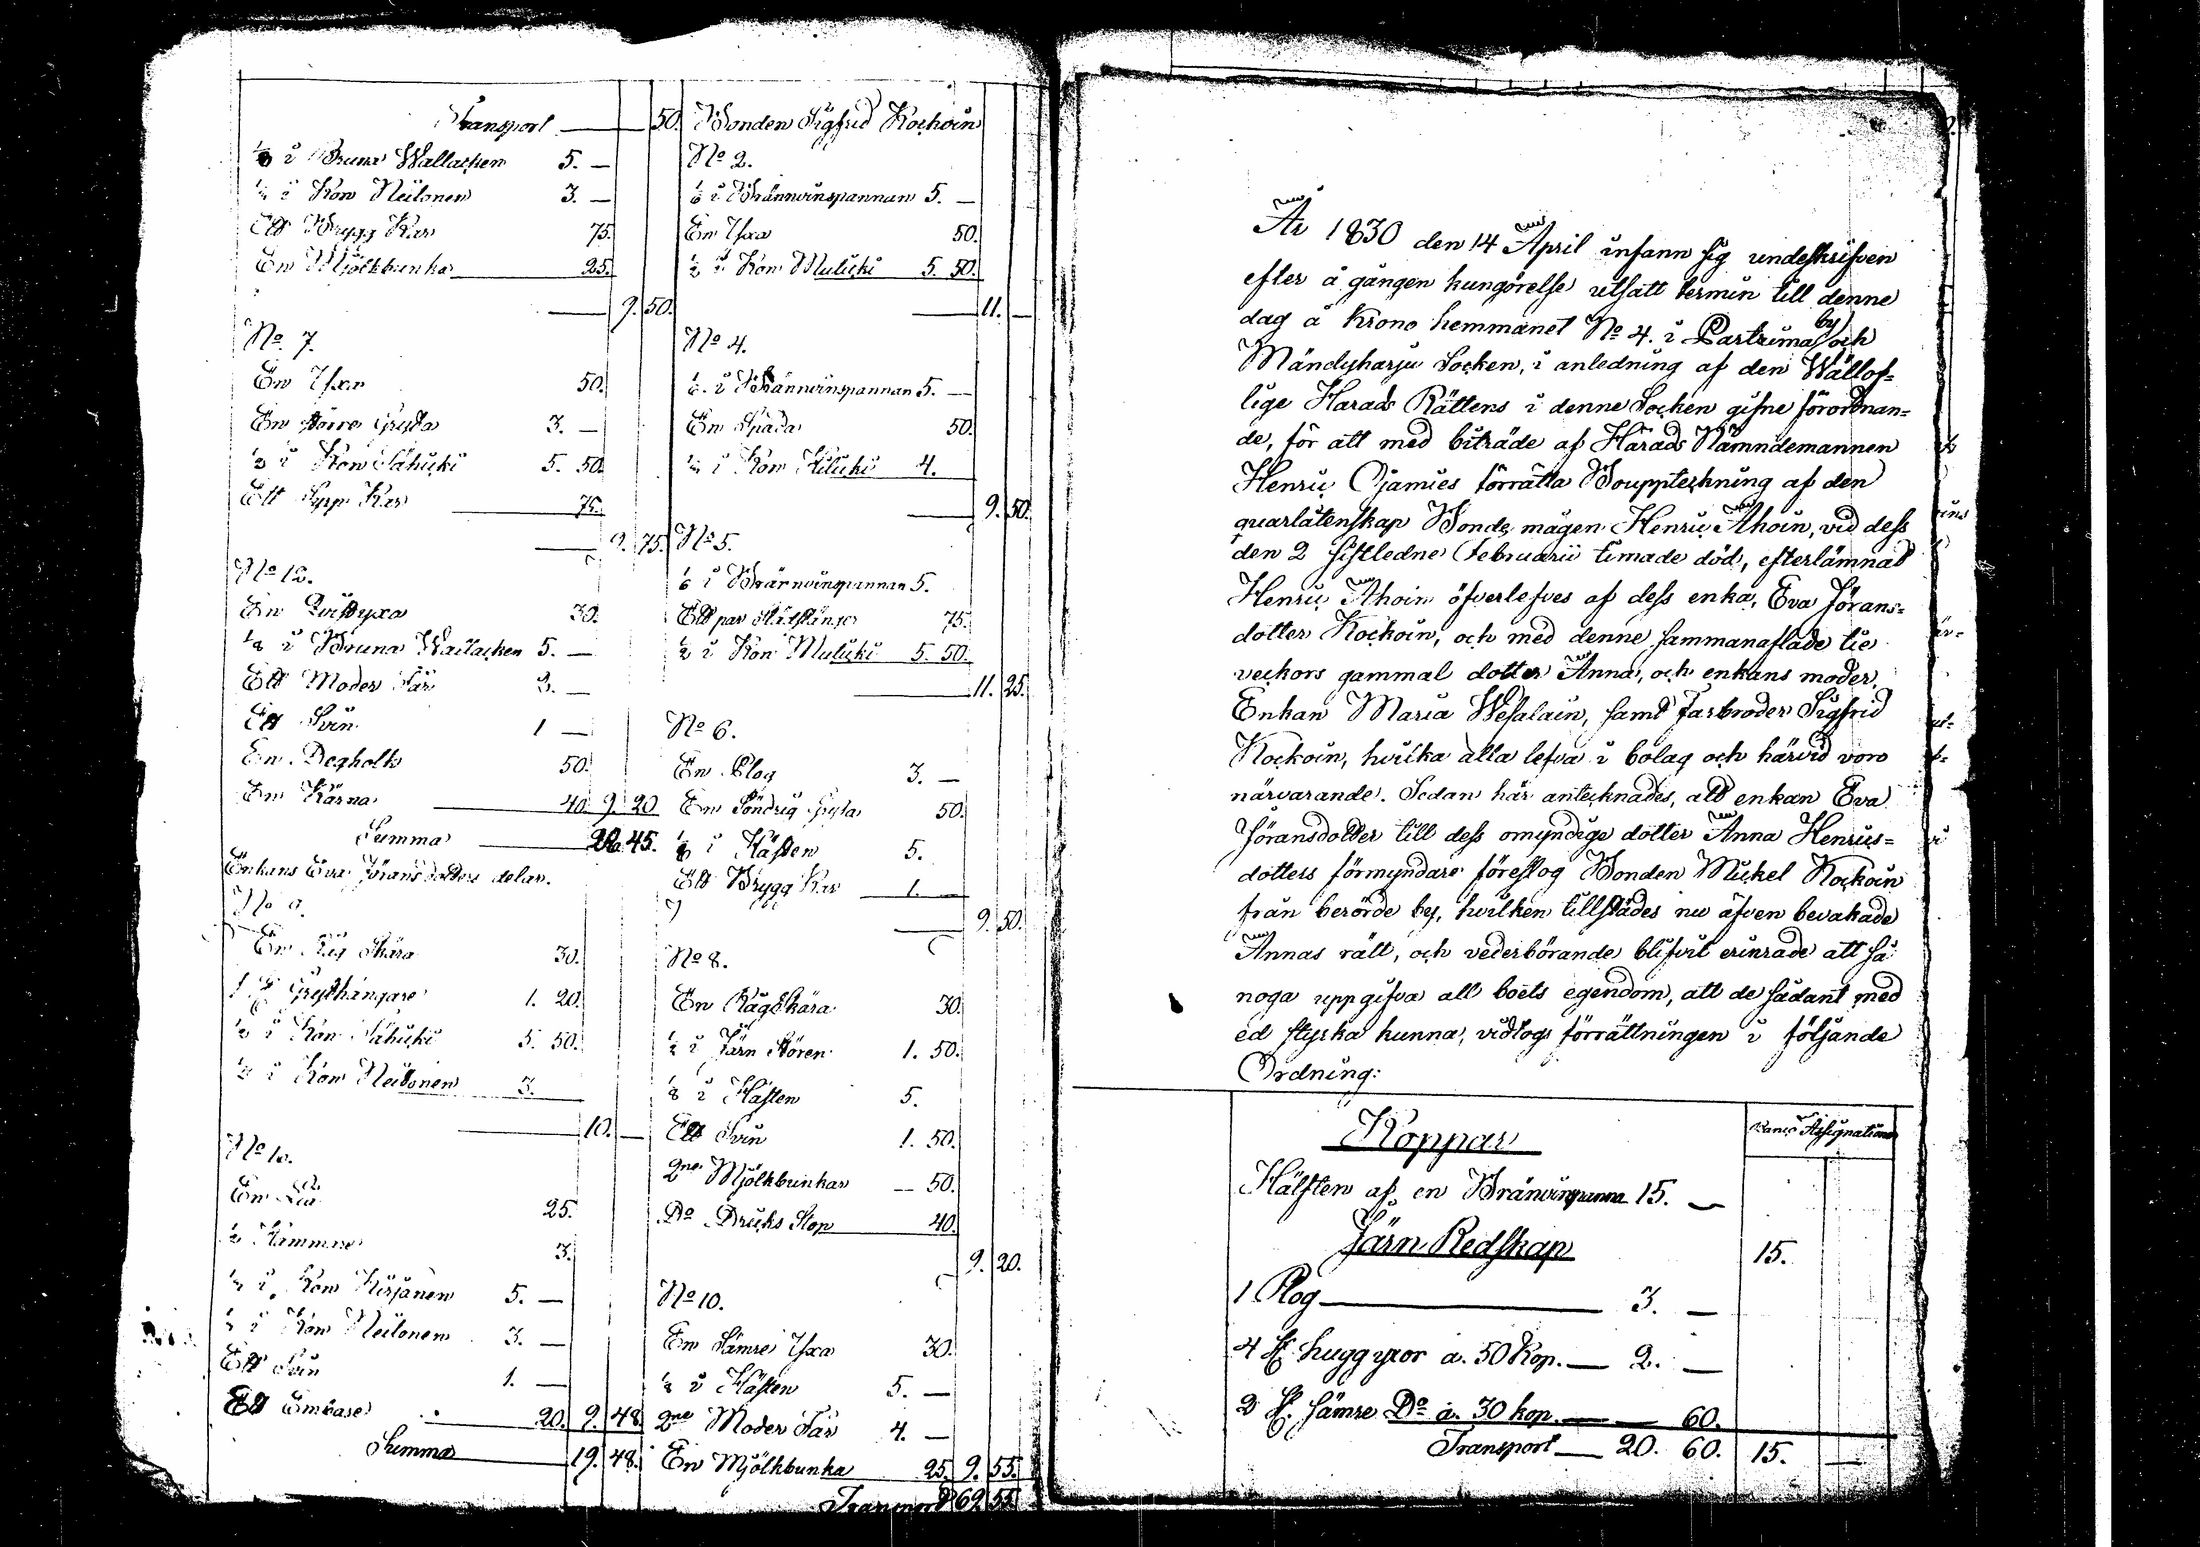 Transport — 50.
1/8 i Bruna Wallacken 5. —
1/2 i Kon Neitonen 3. —
Ett Brygg Kar 75.
En Mjölkbunka 25.
— 9. 50.
No 7.
En Yxa 50.
En större Gryta 3. —
1/2 i Kon Sähicki 5. 50.
Ett Kar 75.
— 9. 75.
No 12.
En Qvistyxa 30.
1/8 i Bruna Wallacken 5. —
Ett Moder Får 2. —
Ett Svin 1 —
En Degholk 50.
En Kärna 40. 9. 20
Summa 45.
Enkans Eva Jöransdotters delar.
No
En Råg Skära 30.
1 st Grythängare 1. 20.
1/2 i Kon Sähicki 5. 50.
1/2 i Kon Neitonen 3.
10. —
No
En Lia 25.
3.
1/2 i Kon Kirjanen 5. —
1/2 i Kon Neitonen 3. —
Ett Svin 1. —
Ett Embare 20. 9. 48
Summa 19. 48.
Bonden Sigfrid Kockoin
No 2.
1/6 i Brännvinspannan 5. —
En Yxa 50.
1/2 i Kon Mulicki 5. 50.
11. —
No 4.
1/6 i Brännvinspannan 5. —
En Spada 50.
1/2 i Kon Kilicki 4.
9. 50.
No 5.
1/6 i Brännvinspannan 5.
Ett par 75.
1/2 i Kon Mulicki 5. 50.
11. 25.
No 6.
En Plog 3. —
En Söndrig Gryta 50.
1/8 i Hästen 5.
Ett Brygg Kar 1. —
9. 50.
No 8.
En Rågskära 30.
1/2 i Järn Stören 1. 50.
1/8 i Hästen 5.
Ett Svin 1. 50.
2ne Mjölkbunkar — 50.
Do Dricks Stop 40.
9. 20.
No 10.
En Sämre Yxa 30.
i Hästen 5. —
2ne Moder Får 4. —
En Mjölkbunka 25. 9. 55.
Transport 69 55
År 1830 den 14 April infann sig undeskrifven
efter å gången kungörelse utsatt termin till denne
dag å Krono hemmanet No 4. i Partrima by och
Mändyharju Socken, i anledning af den Wällof=
lige Harads Rättens i denne Socken gifne förordnan=
de, för att med biträde af Härads Nämndemannen
Henric Ojamies förrätta Bouppteckning af den
quarlåtenskap Bonde, mågen Henric Ahoin, vid dess
den 2 sistledne Februarii timade död, efterlämnat
Henric Ahoin öfverlefves af dess enka, Eva Jörans=
dotter Kockoin, och med denne sammanaflade tie
veckors gammal dotter Anna, och enkans moder,
Enkan Maria Wesalain, samt Farbroder Sigfrid
Kockoin, hvilka alla lefva i bolag och härvid voro
närvarande. Sedan här antecknades, att enkan Eva
Jöransdotter till dess omyndige dotter Anna Henrics=
dotters förmyndare föreslog Bonden Mickel Kockoin
från berörde by, hvilken tillstädes nu äfven bevakade
Annas rätt, och vederbörande blifvit erinrade att så
noga uppgifva allt boets egendom, att de sådant med
ed styrka kunna, vidtogs förrättningen i följande
Ordning:
Banco Assignationer
Koppar
Hälften af en Bränvinspanna 15. —
Järn Redskap 15.
1 Plog — 3. —
4 st huggyxor a. 50 Kop. — 2. —
2 st. sämre Do a. 30 kop. — 60.
Transport — 20. 60. 15. —